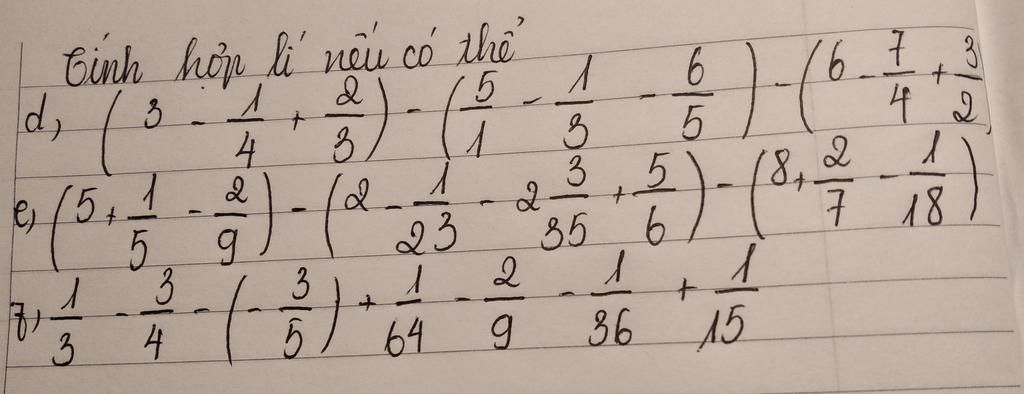 tính hợp lí nếu có thể
d, (3 - 1/4 + 2/3) - (5/1 - 1/3 - 6/5) - (6 - 7/4 + 3/2)
e, (5 + 1/5 - 2/9) - (2 - 1/23 - 2 3/35 + 5/6) - (8 + 2/7 - 1/18)
f, 1/3 - 3/4 - (- 3/5) + 1/64 - 2/9 - 1/36 + 1/15